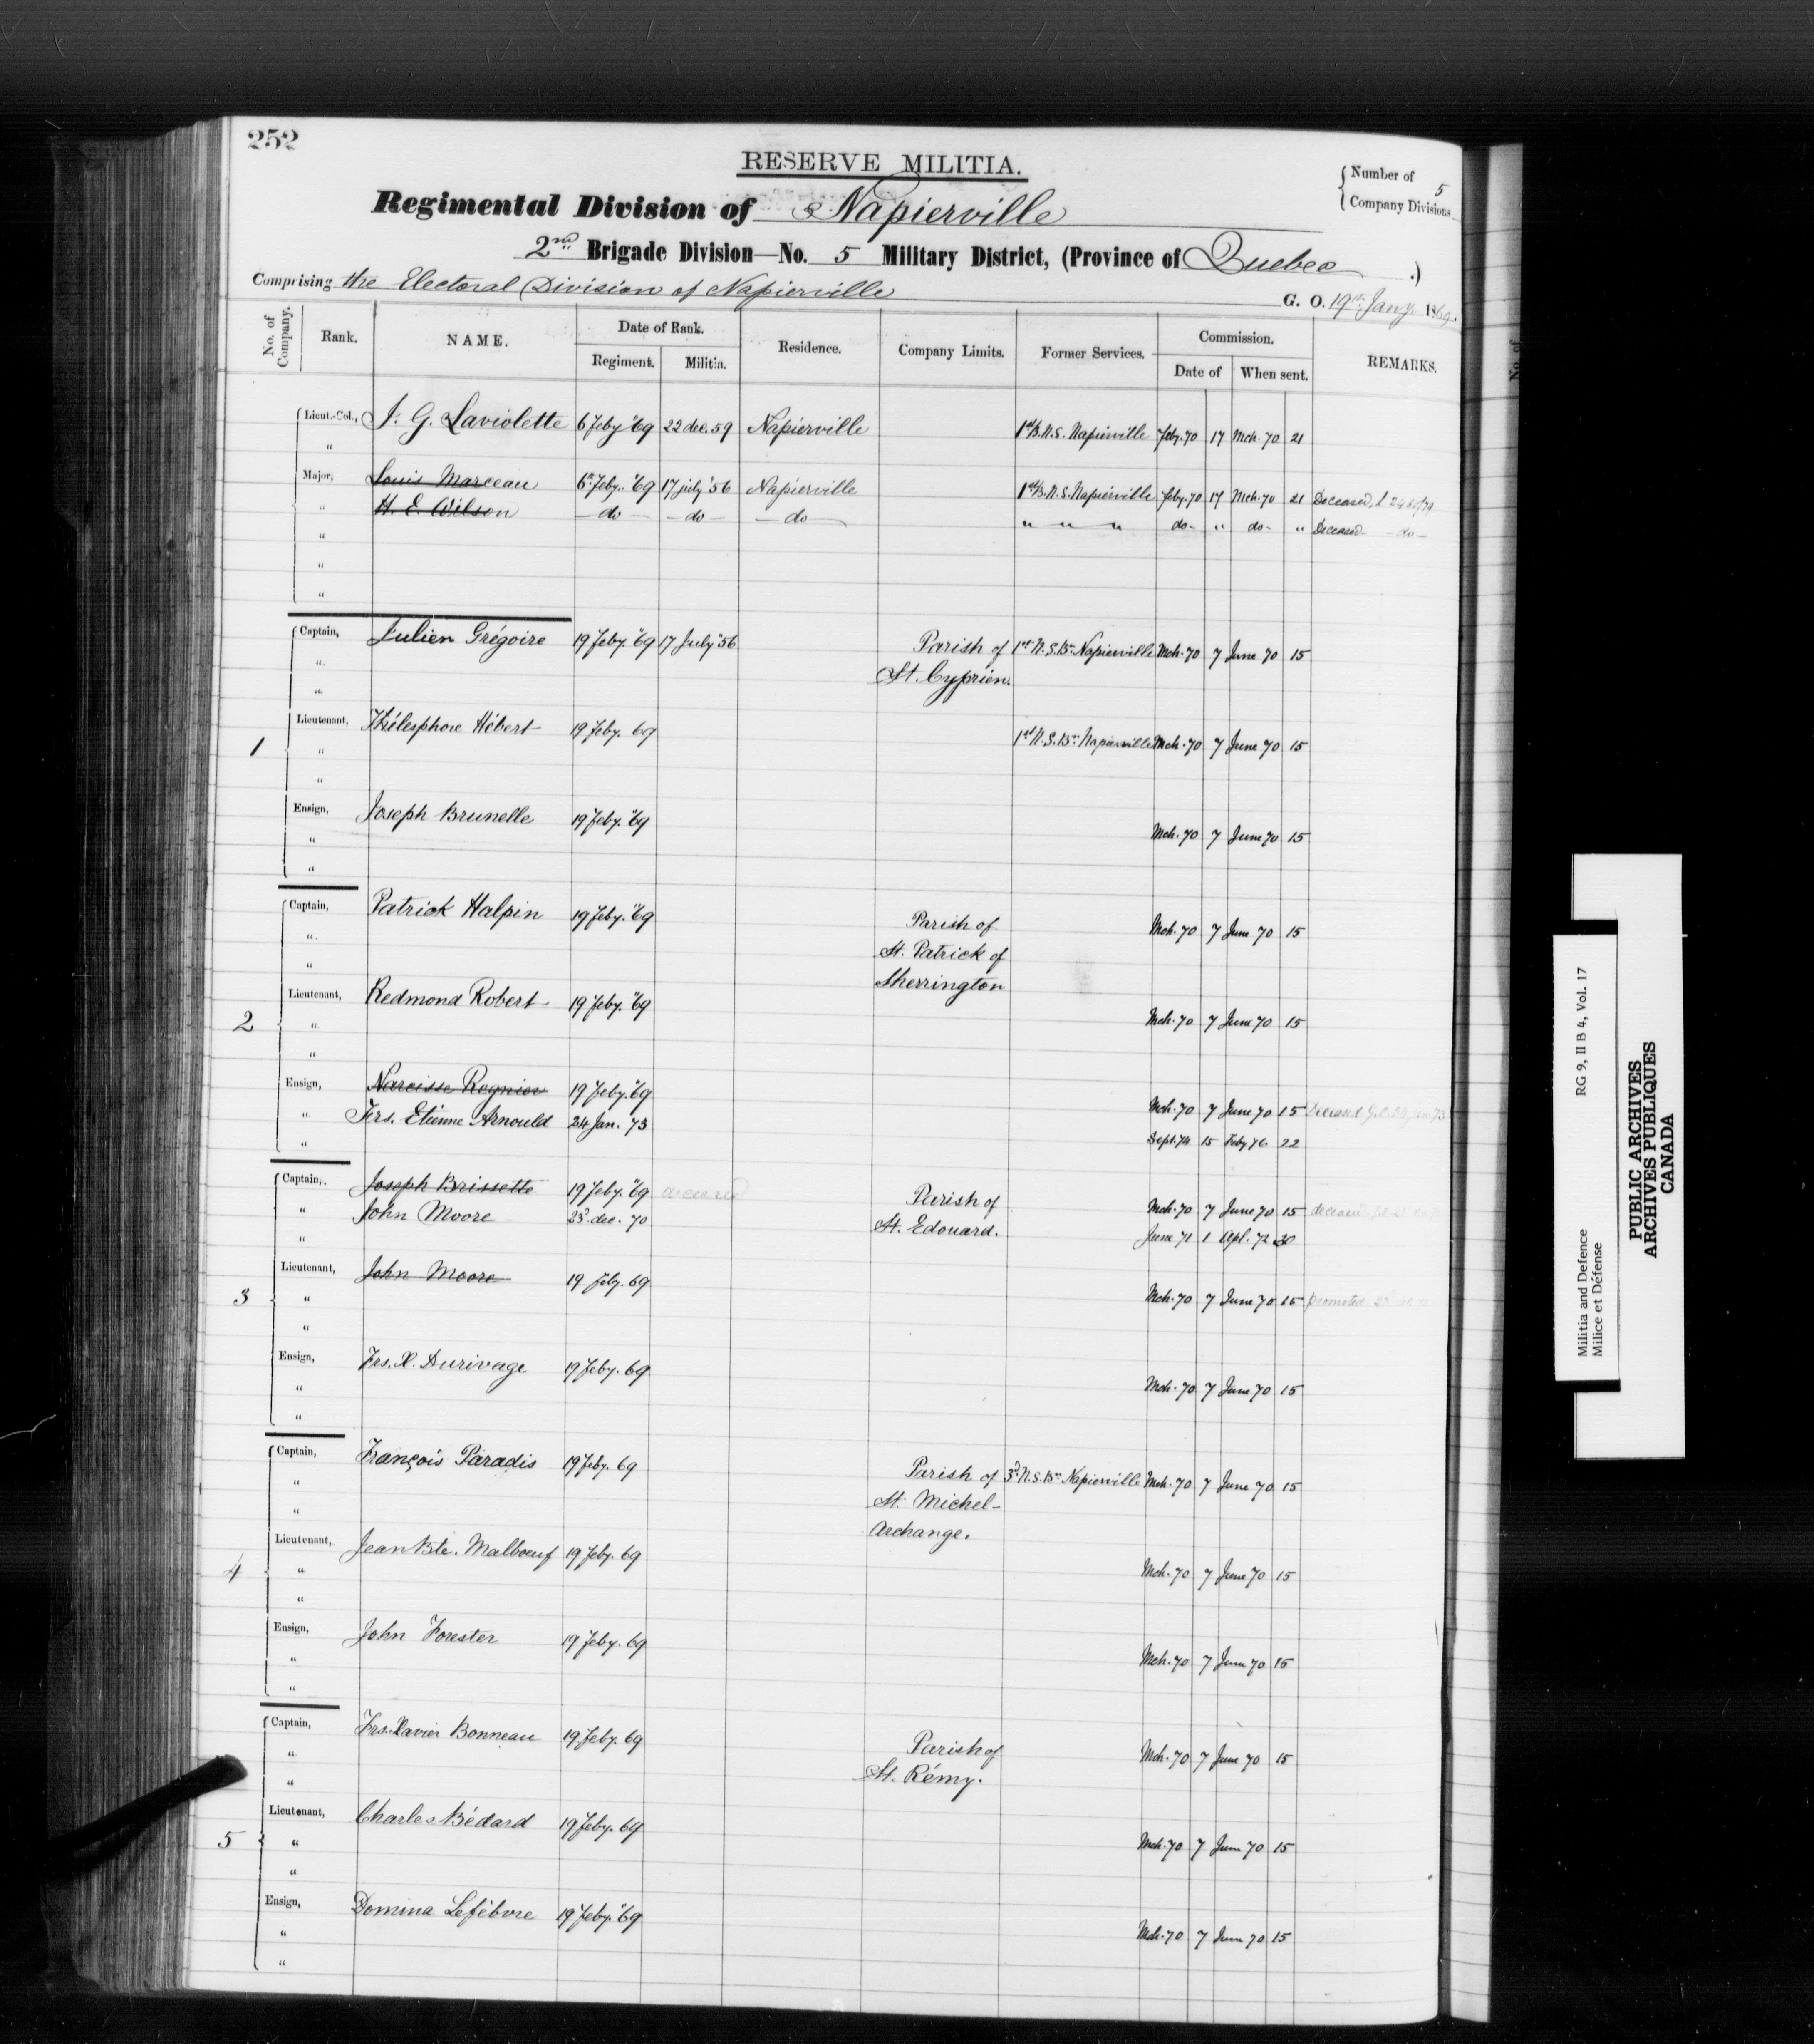 252
RESERVE MILITIA.
Number of
Company Divisions 5
Regimental Division of Napierville
2nd Brigade Division—No. 5 Military District, (Province of Quebec .)
Comprising the Electoral Division of Napierville
G. O. 19th Jany. 1869.
No. of Company. Rank. NAME. Date of Rank. Regiment. Militia. Residence. Company Limits. Former Services. Commission. Date of When sent. REMARKS.
Lieut.-Col., J. G. Laviolette 6 Feby "69 22 dec. 59 Napierville 1st B.N.S. Napierville Feby. 70 17 Mch. 70 21
"
Major, Louis Marceau 6th Feby. "69 17 july "56 Napierville 1st B.N.S. Napierville Feby. 70 17 Mch. 70 21 Deceased,
" H. E. Wilson — do — — do — — do — " " " do - " do - " Deceased - do -
"
"
"
Captain, Julien Grégoire 19 Feby. "69 17 July "56 Parish of 1st N.S. Bn. Napierville Mch. 70 7 June 70 15
" St. Cyprien.
"
Lieutenant, Thélesphore Hébert 19 Feby. 69 1st N.S. Bn. Napierville Mch. 70 7 June 70 15
1 "
"
Ensign, Joseph Brunelle 19 Feby. "69 Mch. 70 7 June 70 15
"
"
Captain, Patrick Halpin 19 Feby. "69 Parish of Mch. 70 7 June 70 15
" St. Patrick of
" Sherrington
Lieutenant, Redmond Robert 19 Feby. "69 Mch. 70 7 June 70 15
2 "
"
Ensign, Narcisse Regnier 19 Feby. "69 Mch. 70 7 June 70 15 Deceased G.O. 24 Jan. 73
" Frs. Etienne Arnould 24 Jan. 73 Sept. 74 15 Feby 76 22
"
Captain, Joseph Brissette 19 Feby. "69 deceased Parish of Mch. 70 7 June 70 15 deceased
" John Moore 23d dec. 70 St. Edouard. June 71 1 Apl. 72 30
"
Lieutenant, John Moore 19 Feby. 69 Mch. 70 7 June 70 15 promoted
3 "
"
Ensign, Frs. X. Durivage 19 Feby. 69 Mch. 70 7 June 70 15
"
"
Captain, François Paradis 19 Feby. 69 Parish of 3d N.S. Bn. Napierville Mch. 70 7 June 70 15
" St. Michel-
" Archange.
Lieutenant, Jean Bte. Malboeuf 19 Feby. 69 Mch. 70 7 June 70 15
4 "
"
Ensign, John Forester 19 Feby. 69 Mch. 70 7 June 70 15
"
"
Captain, Frs. Xavier Bonneau 19 Feby. 69 Parish of Mch. 70 7 June 70 15
" St. Rémy.
"
Lieutenant, Charles Bédard 19 Feby. 69 Mch. 70 7 June 70 15
5 "
"
Ensign, Domina Lefébvre 19 Feby. "69 Mch. 70 7 June 70 15
"
"
No. of
Militia and Defence RG 9, II B 4, Vol. 17
Milice et Défense
PUBLIC ARCHIVES
ARCHIVES PUBLIQUES
CANADA